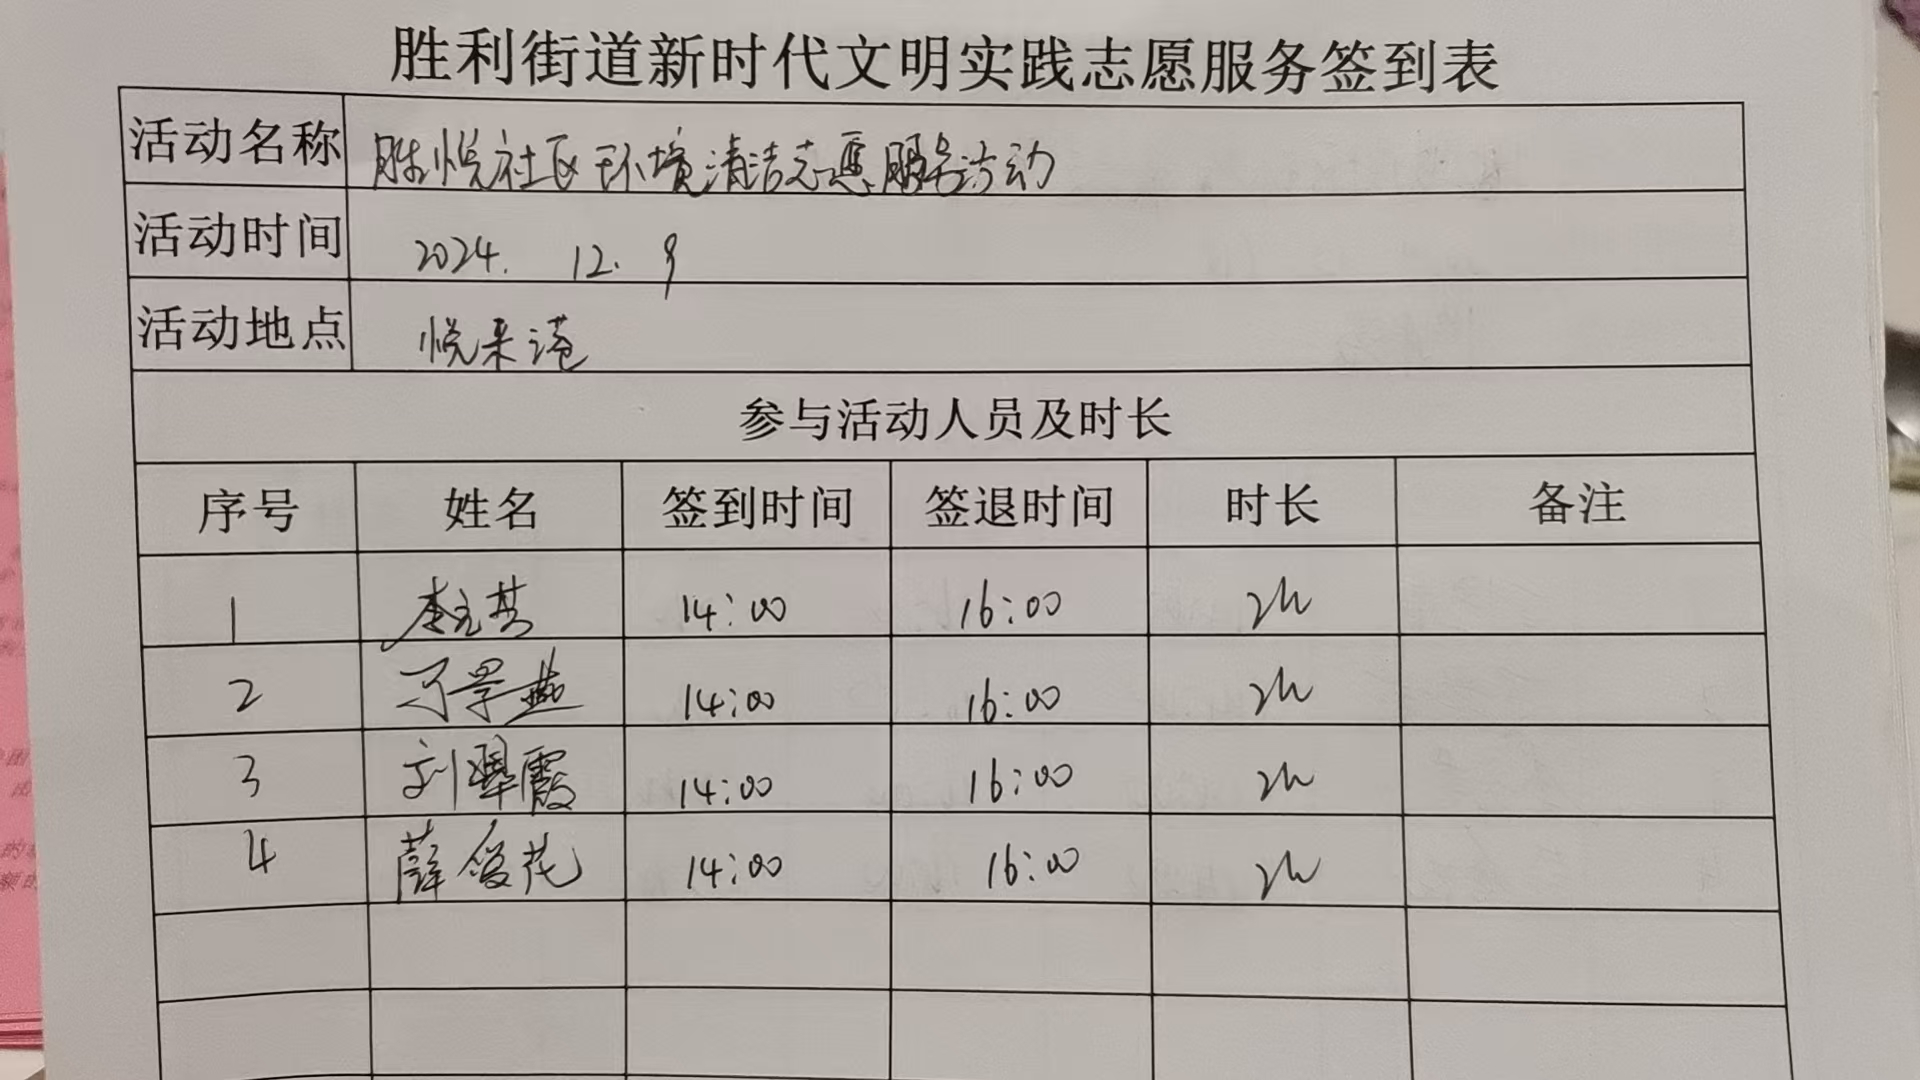 胜利街道新时代文明实践志愿服务签到表
活动名称 胜悦社区环境清洁志愿服务活动
活动时间 2024. 12. 9
活动地点 悦来港
参与活动人员及时长
序号 姓名 签到时间 签退时间 时长 备注
1 14:00 16:00 2h
2 14:00 16:00 2h
3 刘翠霞 14:00 16:00 2h
4 薛俊花 14:00 16:00 2h